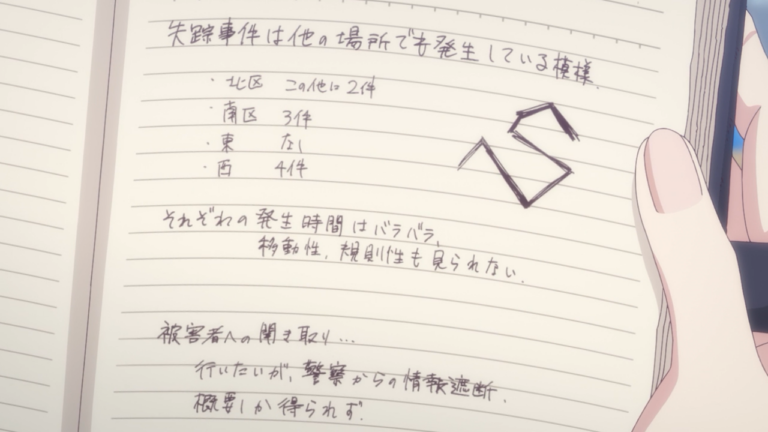 失踪事件は他の場所でも発生している模様.
・北区 この他に2件
・南区 3件
・東 なし
・西 4件
それぞれの発生時間はバラバラ,
移動性,規則性も見られない.
被害者への聞き取り…
行いたいが,警察からの情報遮断.
概要しか得られず.